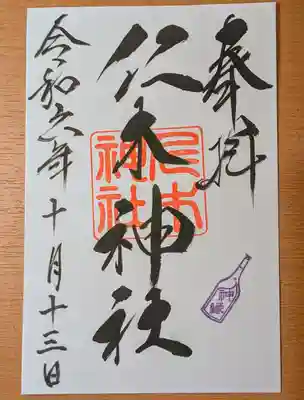 奉拝
仁木神社
仁木神社
神縁
令和六年十月十三日